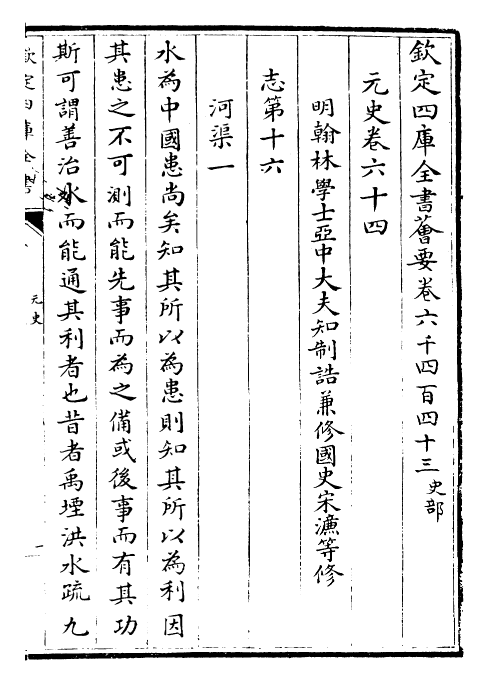 欽定四庫全書薈要卷六千四百四十三 史部
元史卷六十四
明翰林學士亞中大夫知制誥兼修國史宋濂等修
志第十六
河渠一
水為中國患尚矣知其所以為患則知其所以為利因
其患之不可測而能先事而為之備或後事而有其功
斯可謂善治水而能通其利者也昔者禹堙洪水疏九
欽定四庫全書
元史
一